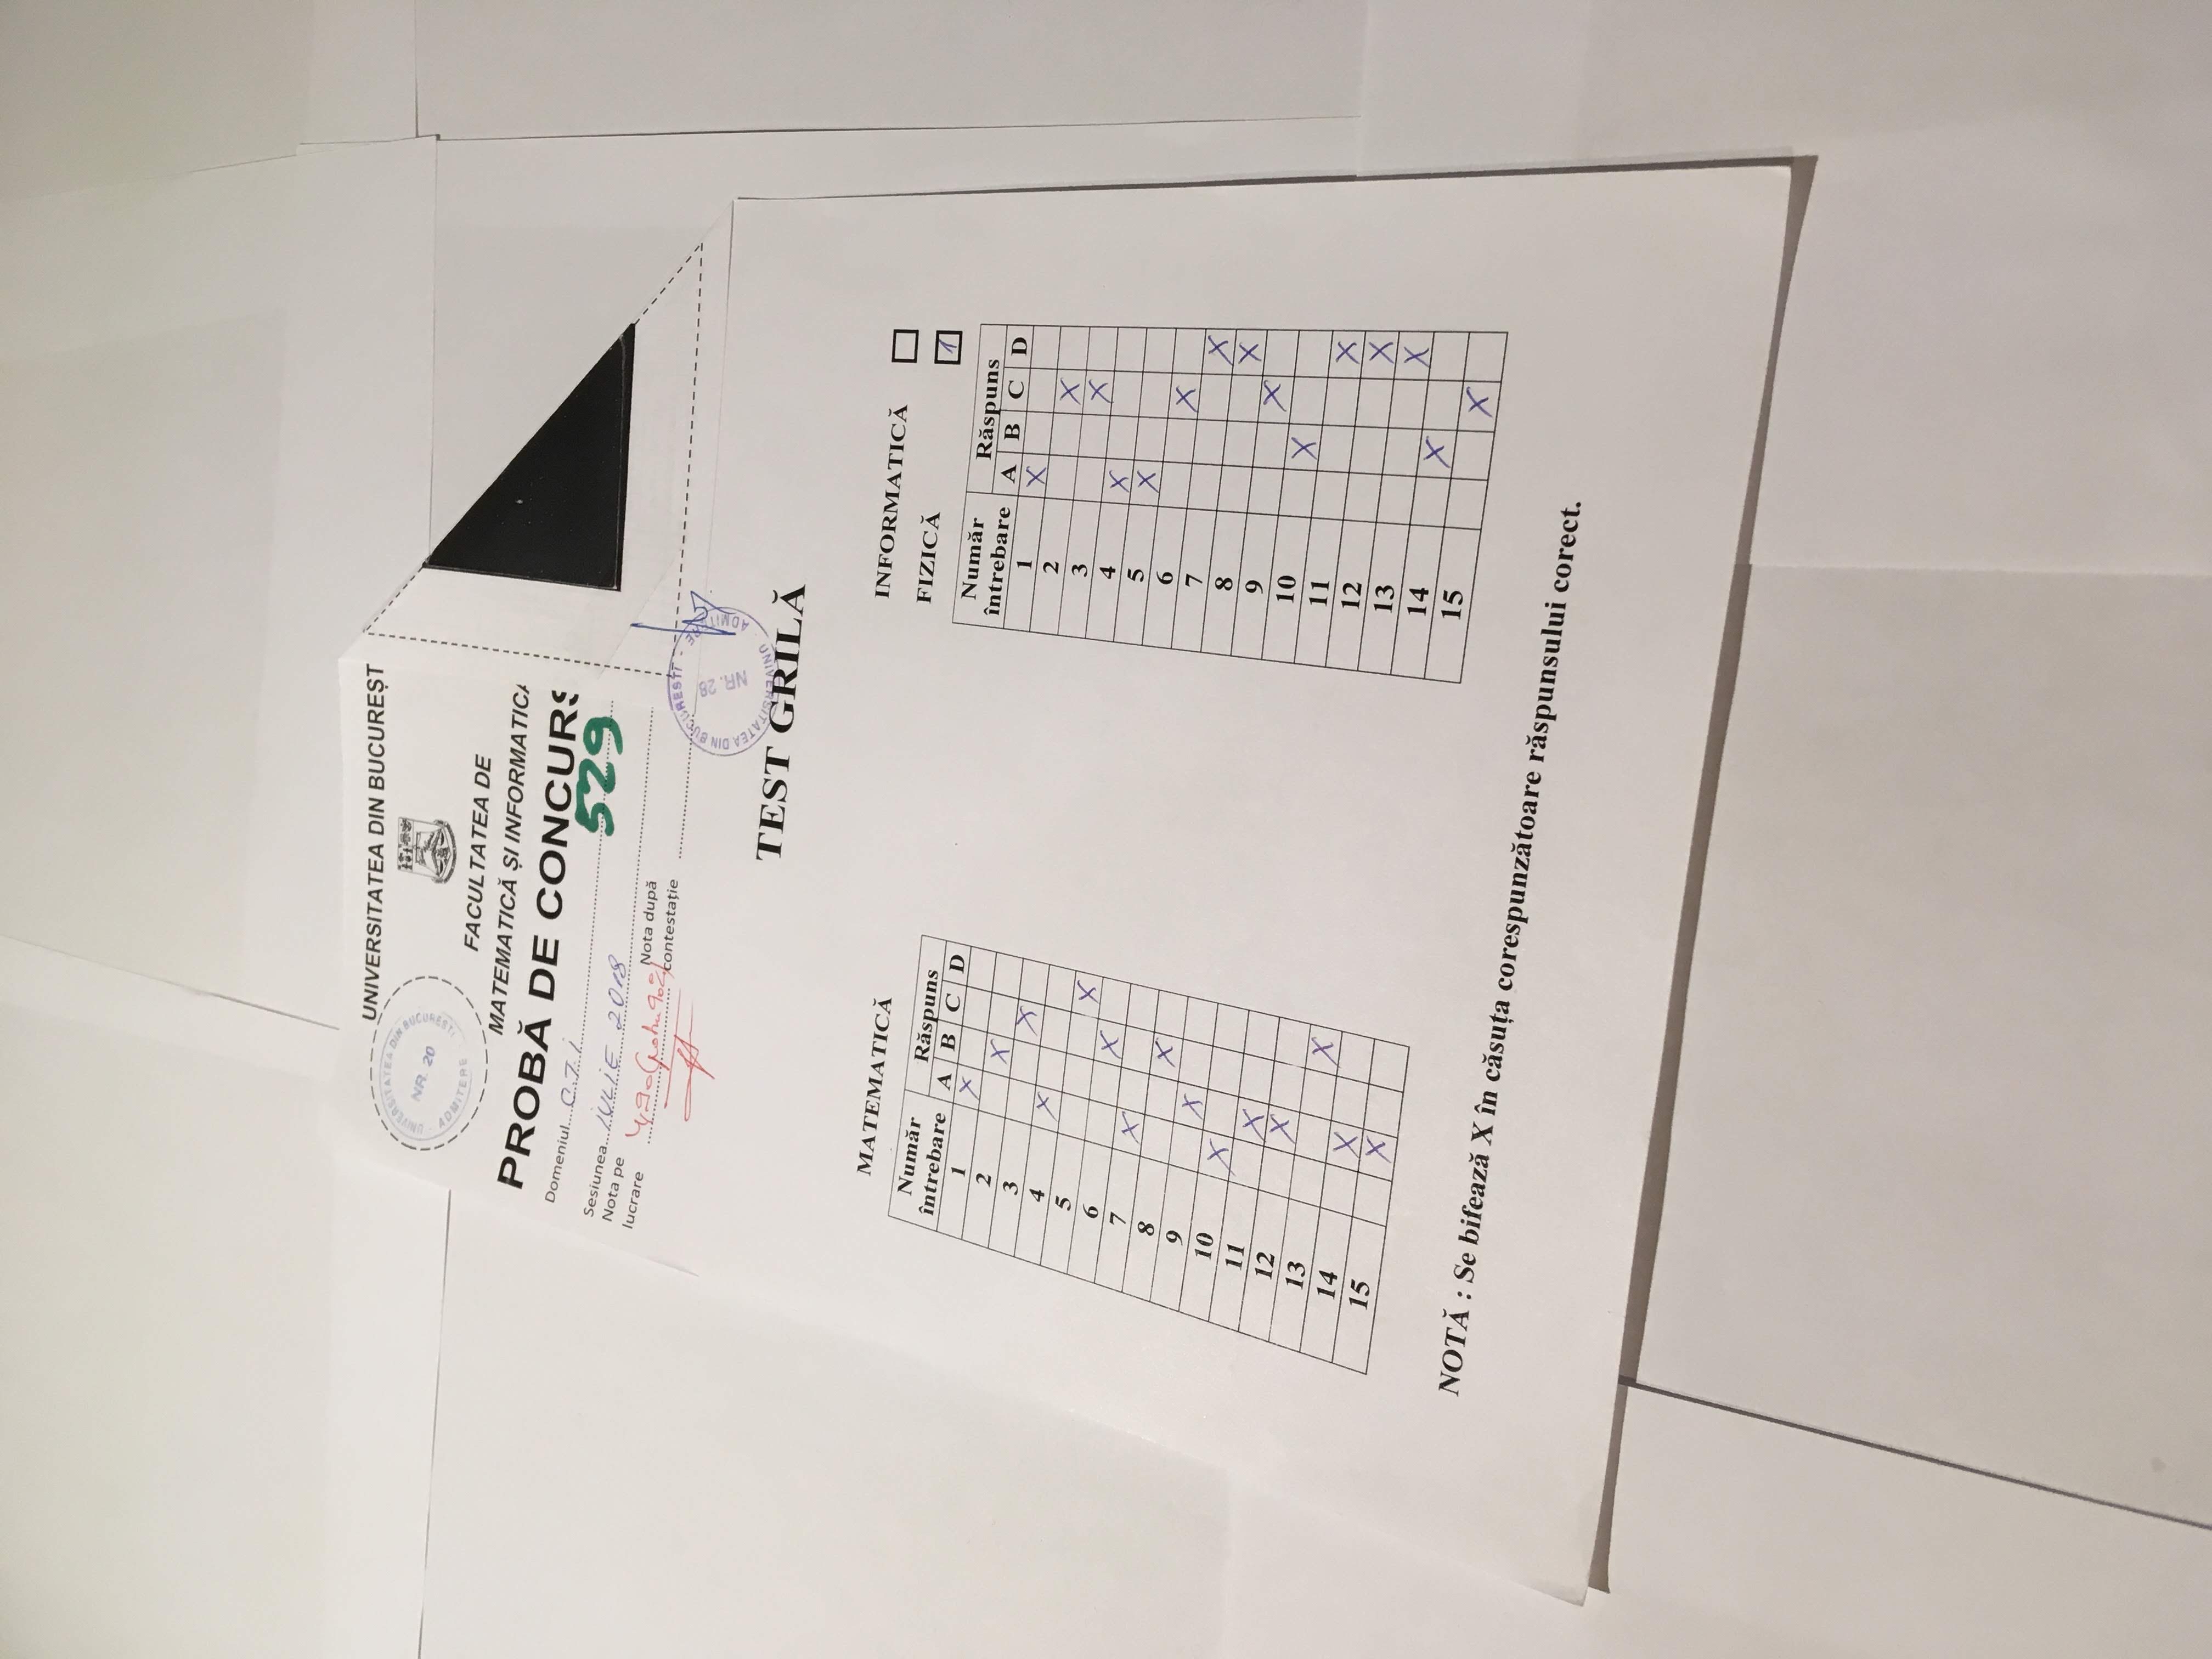 UNIVERSITATEA DIN BUCUREȘT
UNIVERSITATEA DIN BUCURESTI
NR. 20
ADMITERE
FACULTATEA DE
MATEMATICĂ ȘI INFORMATICA
PROBĂ DE CONCURS
Domeniul C.T.I
529
Sesiunea IULIE 2018
Nota pe
lucrare 4,90 (patru 90%)
Nota după
contestație
UNIVERSITATEA DIN BUCURESTI - ADMITERE
NR. 28
TEST GRILĂ
MATEMATICĂ
Număr întrebare Răspuns
A B C D
1 X
2 X
3 X
4 X
5 X
6 X
7 X
8 X
9 X
10 X
11 X
12 X
13 X
14 X
15 X
INFORMATICĂ
FIZICĂ 1
Număr întrebare Răspuns
A B C D
1 X
2 X
3 X
4 X
5 X
6 X
7 X
8 X
9 X
10 X
11 X
12 X
13 X
14 X
15 X
NOTĂ : Se bifează X în căsuța corespunzătoare răspunsului corect.